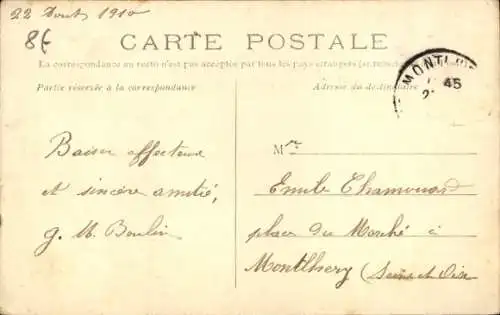 22 Aout 1910
8f
CARTE POSTALE
La correspondance au recto n'est pas acceptée par tous les pays étrangers (se rense
Partie réservée à la correspondance
Adresse du destinataire
MONTLH
45
Baiser affectueux
et sincère amitié,
g. M. Boulin
Mr
Emile Chamouard
place du Marché à
Montlhery (Seine et Oise